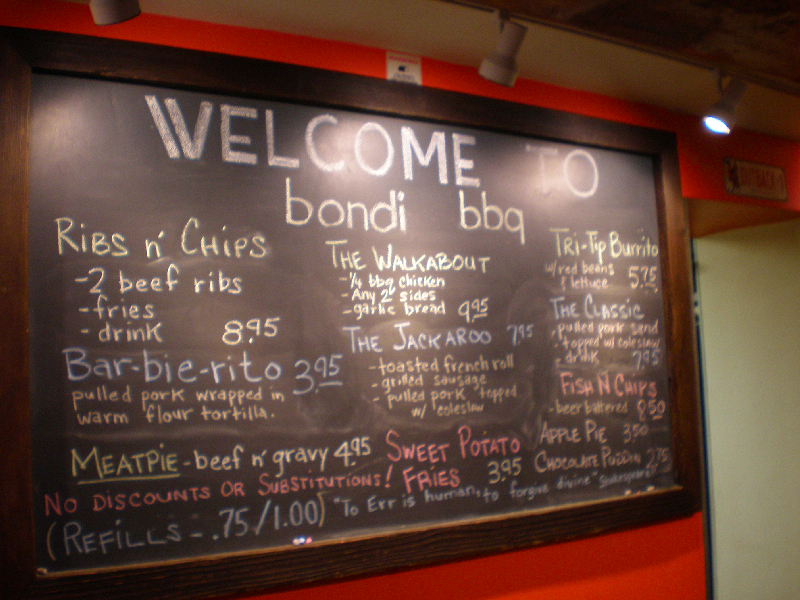 WELCOME TO
bondi bbq
RIBS n' CHIPS
-2 beef ribs
-fries
-drink 8.95
Bar-bie-rito 3.95
pulled pork wrapped in
warm flour tortilla.
MEATPIE-beef n' gravy 4.95
THE WALKABOUT
-1/4 bbq chicken
-Any 2 sides
-garlic bread 9.95
THE JACKAROO 7.95
-toasted french roll
-grilled sausage
-pulled pork topped
w/ coleslaw
SWEET POTATO
FRIES 3.95
TRI-TIP Burrito
w/red beans
& lettuce 5.75
THE CLASSIC
-pulled pork sand
-topped w/ coleslaw
-drink 7.95
FISH N CHIPS
-beer battered 8.50
APPLE PIE 3.50
CHOCOLATE PUDDIN 2.75
NO DISCOUNTS OR SUBSTITUTIONS!
(REFILLS - .75/1.00)
"To Err is human, to forgive divine"
OUTBACK